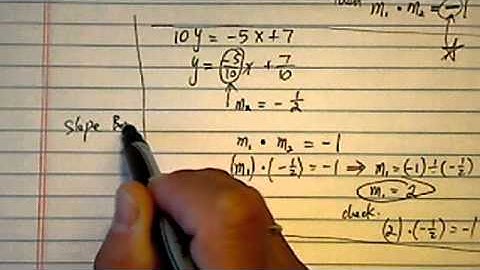 m₁ · m₂ = -1
10y = -5x + 7
y = (-5/10)x + 7/10
m₂ = -1/2
slope
m₁ · m₂ = -1
(m₁) · (-1/2) = -1 ⇒ m₁ = (-1) ÷ (-1/2)
m₁ = 2
check.
(2) · (-1/2) = -1